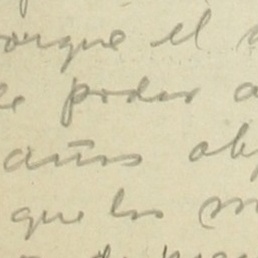 porque el
de poder a
años ob
que los m